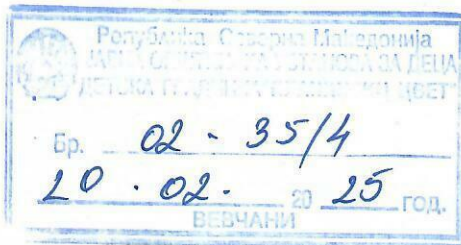 Република Северна Македонија
ЈАВНА ОПШТИНСКА УСТАНОВА ЗА ДЕЦА
ДЕТСКА ГРАДИНКА ЦВЕТ"
Бр. 02 - 35/4
20 . 02. 20 25 год.
ВЕВЧАНИ